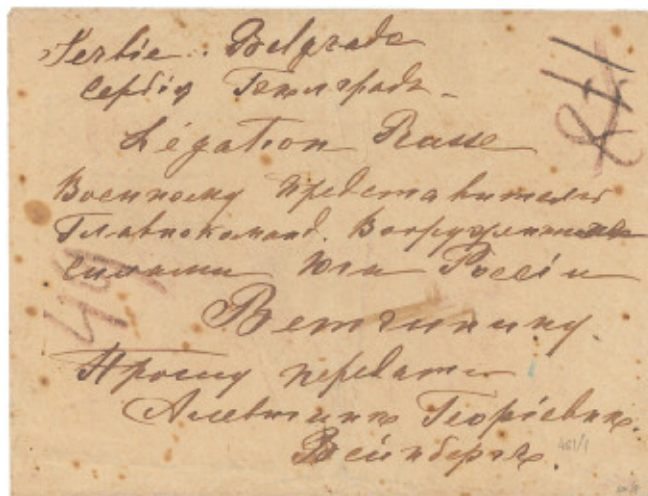 Serbie. Belgrade
Сербiя Бѣлградъ
Légation Russe
Военному Представителю
Главнокоманд. Вооруженными
силами Юга Россiи
Прошу передать
Георгiевнѣ
Вейнбергъ.
461/1